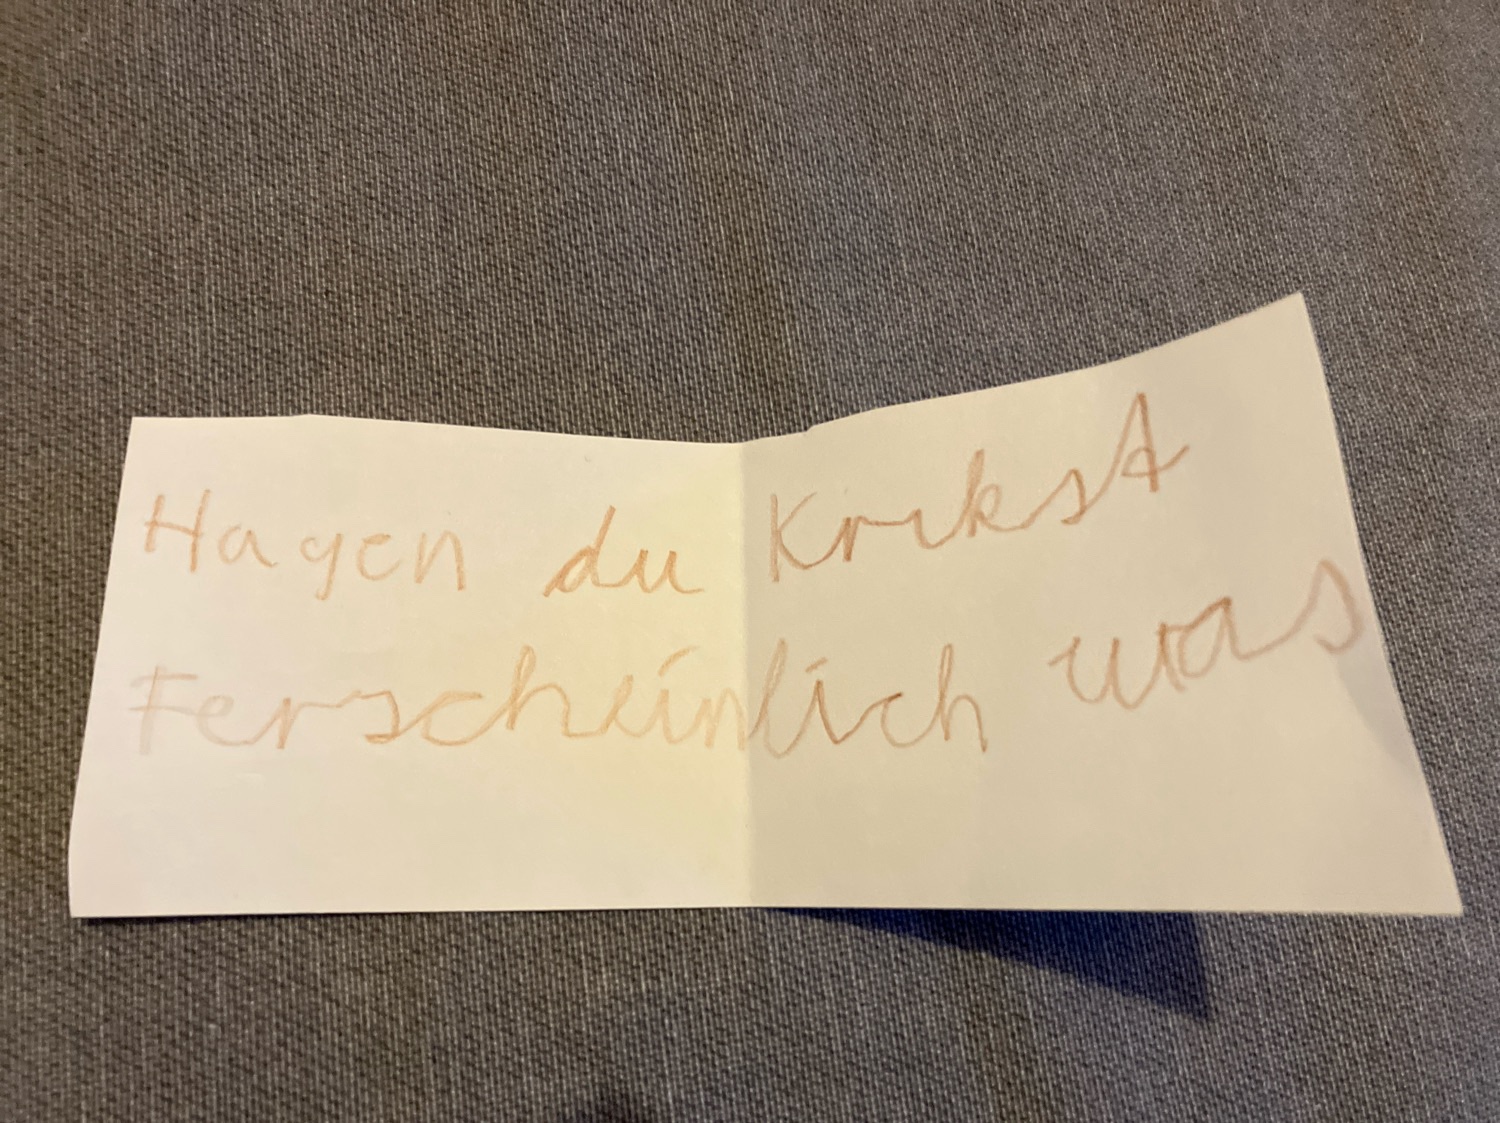 Hagen du Krikst
Ferscheinlich was